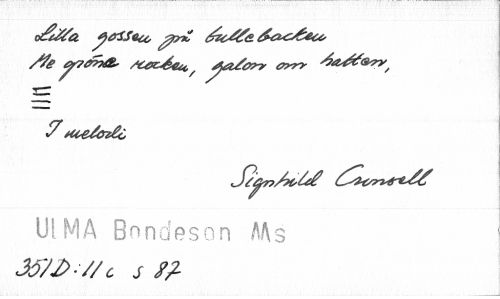 Lilla gossen på tullebacken
Me gröne rocken, galon om hatten,
1 melodi
Signhild Cronsell
ULMA Bondeson Ms
351D:11c s 87